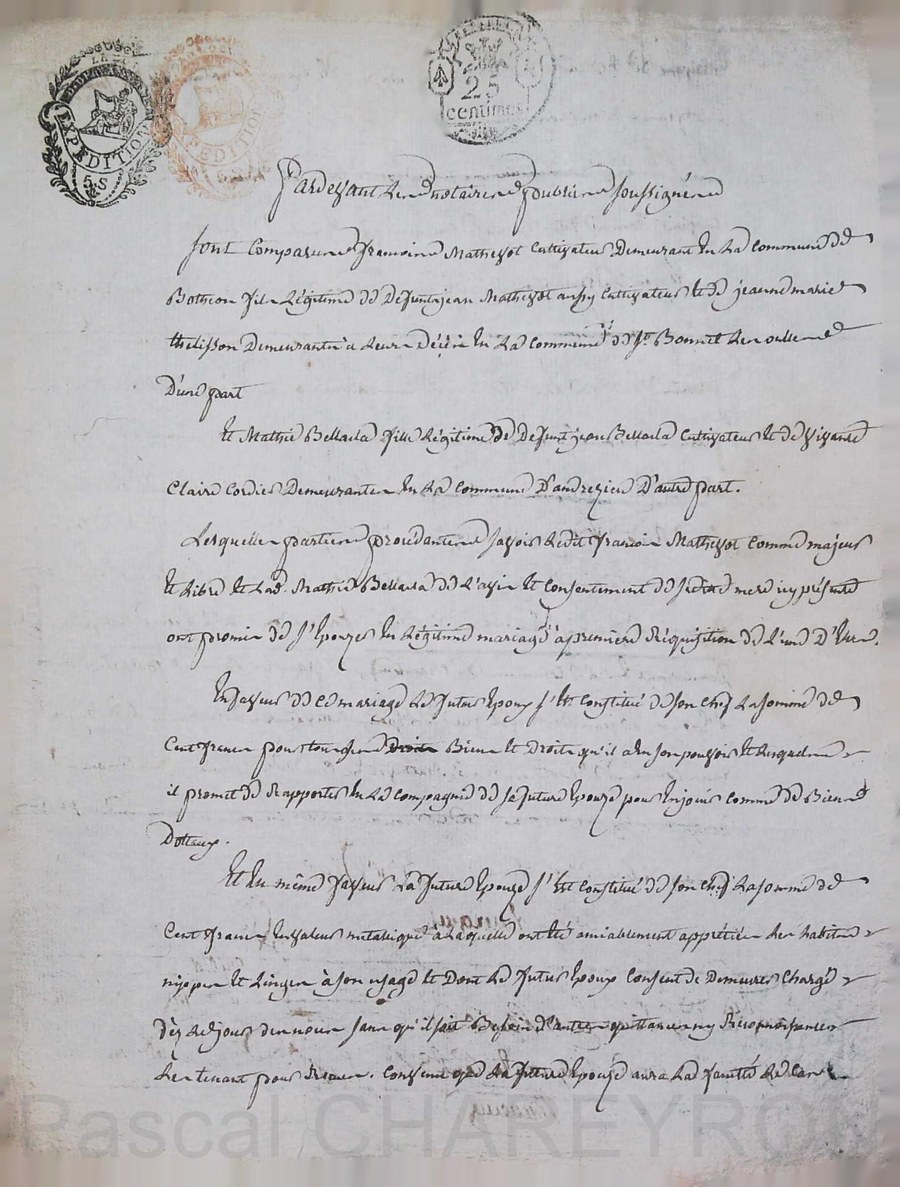 EXPEDITION
5.S
25
centimes
Pardevant Les notaires publics soussignés
sont Comparus françois Matheyot Cultivateur Demeurant En La Commune de
Botheon fils Légitime de Defunt jean Matheyot aussy Cultivateur et de jeanne marie
thelisson Demeurant a Leur Décès En La Commune de St. Bonnet Les oulles
D'une part
Et Mathie Bellacla fille Légitime de Defunt jean Bellacla Cultivateur et de
Claire Cordier Demeurantes En La Commune D'andrezieu D'autre part.
Lesquelles parties procédantes savoir Ledit françois Matheyot Comme majeur
Et Libre Et Lad. Mathie Bellacla de L'avis Et Consentement de sadite mere icy présente
ont promis de s'Epouzer En Légitime mariage à première Réquisition de L'un D'Eux.
En faveur de Ce mariage Le futur Epoux s'Est Constitué de son Chef La somme de
Cent francs pour tous ses Droits Biens Et Droits qu'il a En son pouvoir Et Lesquels
il promet de Rapporter En La Compagnie de sa future Epouze pour En jouir Comme de Biens
Dottaux.
Et En même faveur La future Epouze s'Est Constitué de son Chef La somme de
Cent francs En valeur métallique à Laquelle ont Eté amiablement appretiés Ses habits
nippes Et Linges à son usage Et Dont Le futur Epoux Consent de Demeurer Chargé
dèz Le jour des noces sans qu'il soit Besoin D'autres quittances ny Reconnoissances
Les tenant pour Reçues. Convenu que La future Epouze aura La faculté Le Cas
Pascal CHAREYRON